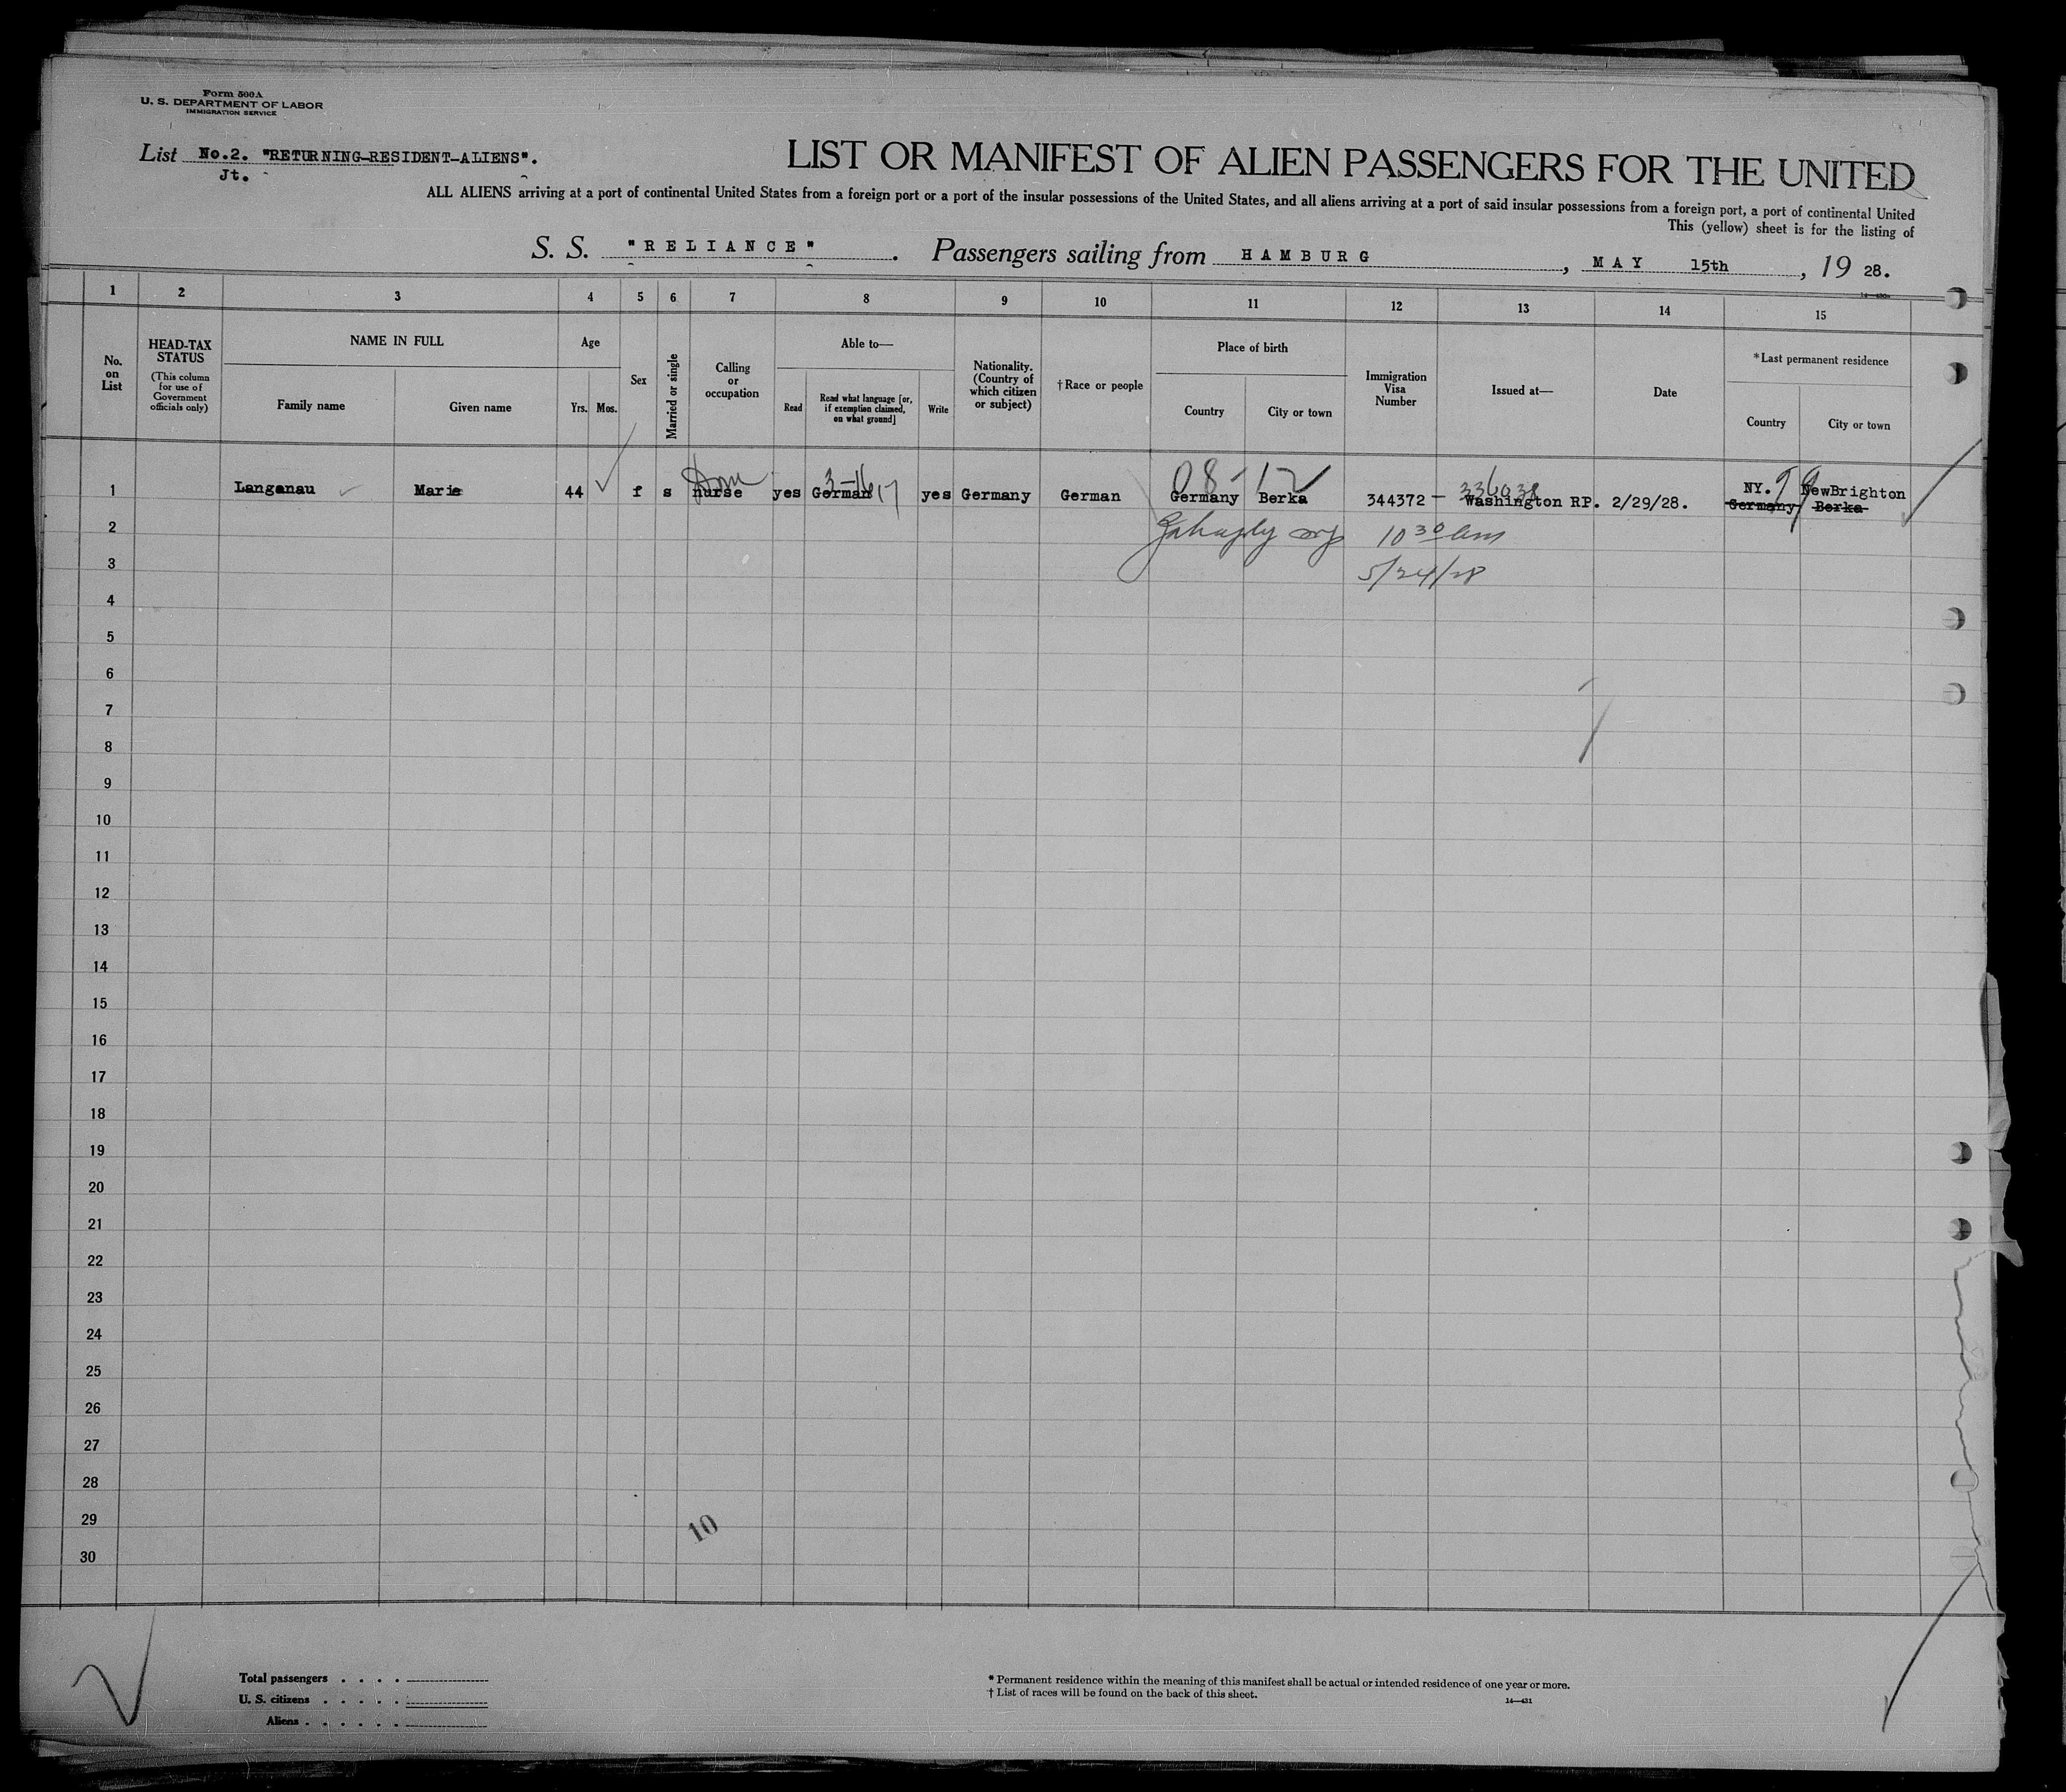 Form 500A
U. S. DEPARTMENT OF LABOR
IMMIGRATION SERVICE
List No.2. "RETURNING-RESIDENT-ALIENS".
Jt.
LIST OR MANIFEST OF ALIEN PASSENGERS FOR THE UNITED
ALL ALIENS arriving at a port of continental United States from a foreign port or a port of the insular possessions of the United States, and all aliens arriving at a port of said insular possessions from a foreign port, a port of continental United
This (yellow) sheet is for the listing of
S. S. "RELIANCE". Passengers sailing from HAMBURG, MAY 15th, 19 28.
1 2 3 4 5 6 7 8 9 10 11 12 13 14 15
No. on List
HEAD-TAX STATUS
(This column for use of Government officials only)
NAME IN FULL
Family name Given name
Age
Yrs. Mos.
Sex
Married or single
Calling or occupation
Able to—
Read
Read what language [or, if exemption claimed, on what ground]
Write
Nationality. (Country of which citizen or subject)
†Race or people
Place of birth
Country City or town
Immigration Visa Number
Issued at—
Date
*Last permanent residence
Country City or town
Dom 3-16/17 08-12 336038 99
1 Langanau Marie 44 f s nurse yes German yes Germany German Germany Berka 344372 — Washington RP. 2/29/28. NY. NewBrighton
Germany Berka
2 10 30 am
3 5/24/28
4
5
6
7
8
9
10
11
12
13
14
15
16
17
18
19
20
21
22
23
24
25
26
27
28
29
10
30
Total passengers . . . .
U. S. citizens . . . . .
Aliens . . . . . .
* Permanent residence within the meaning of this manifest shall be actual or intended residence of one year or more.
† List of races will be found on the back of this sheet.
14—431